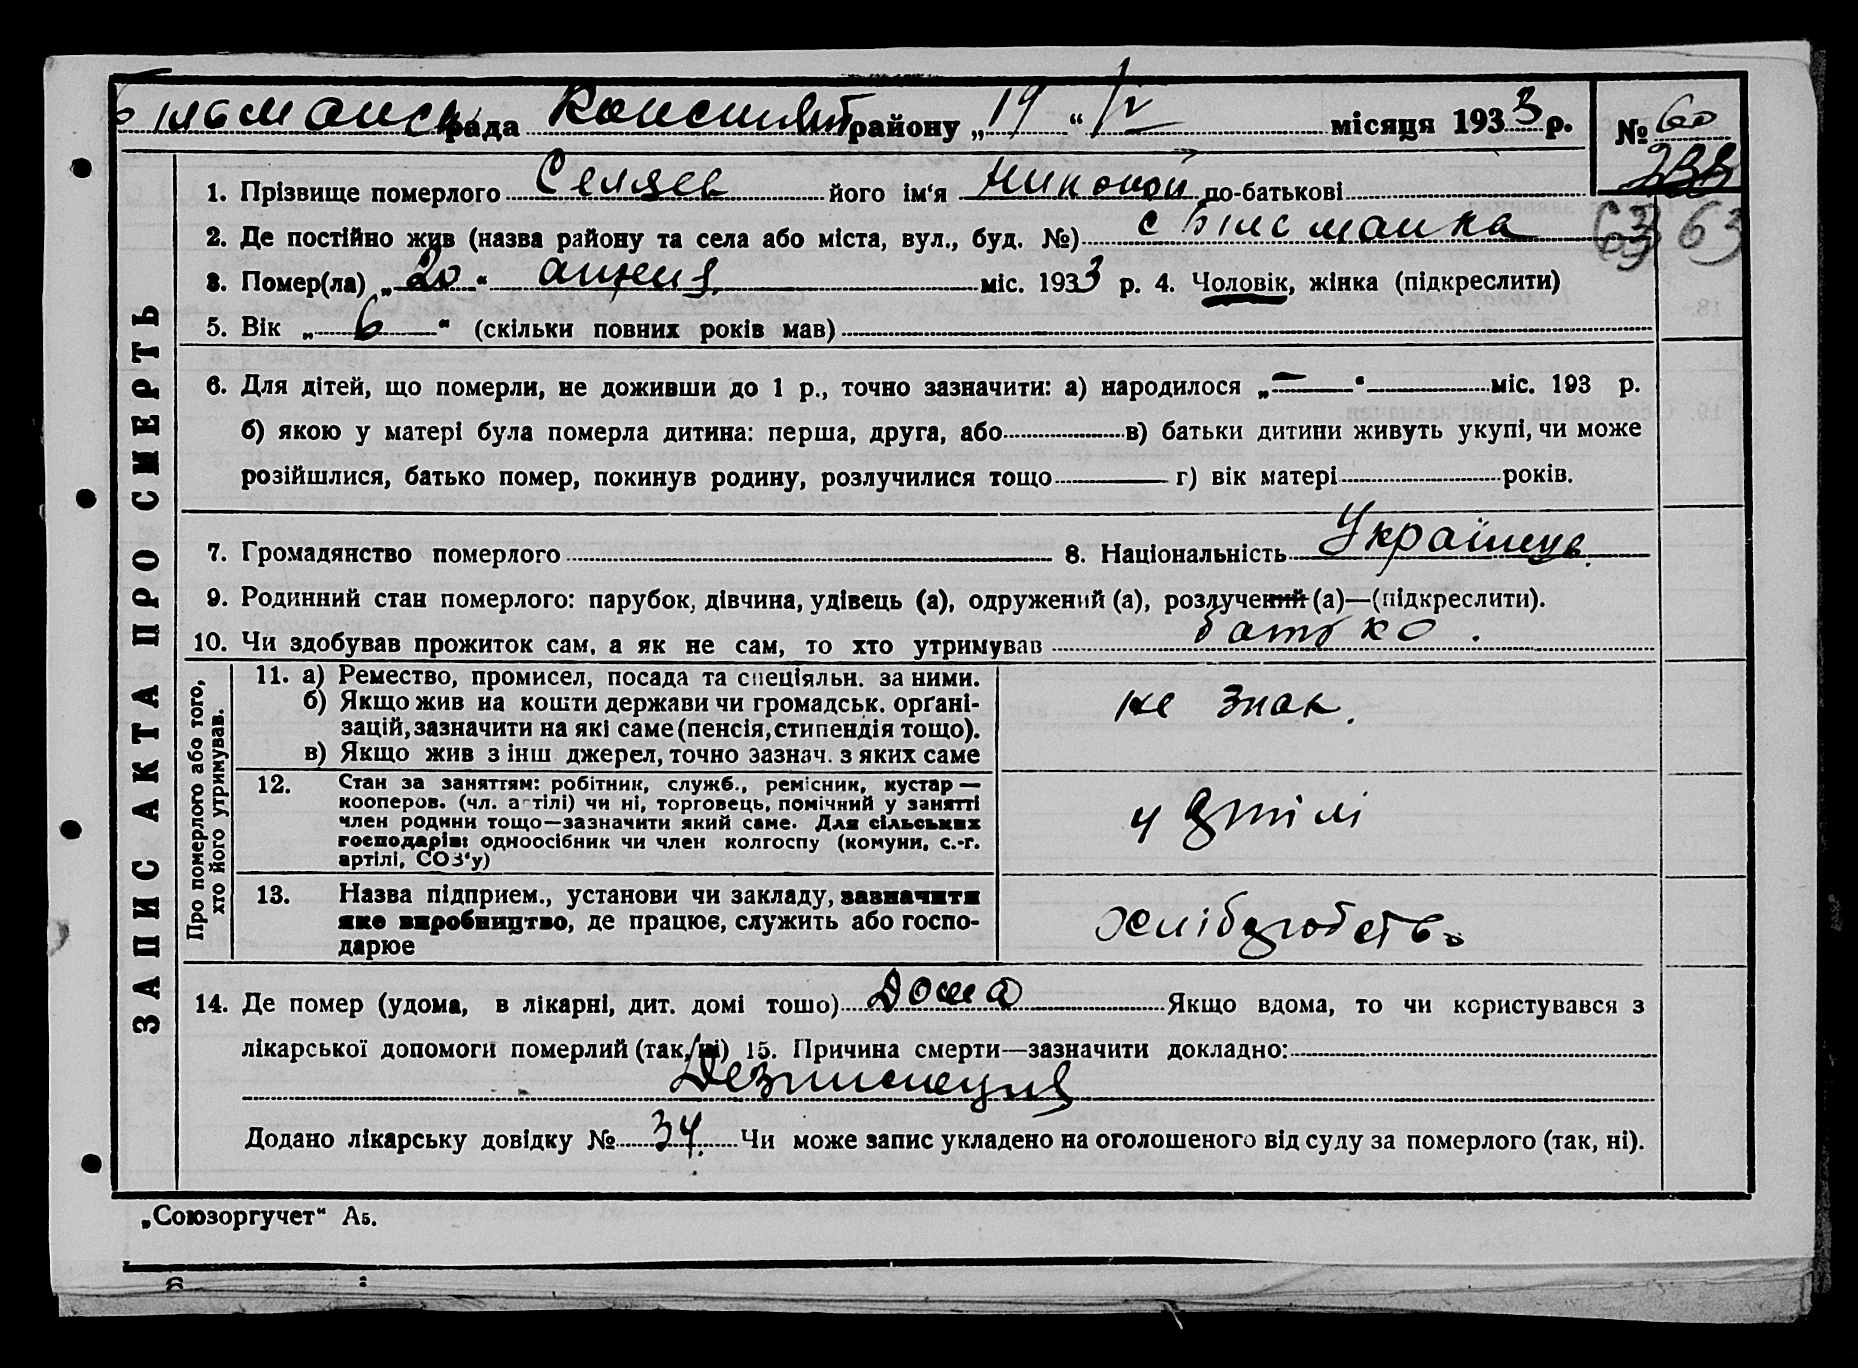 Більманськ рада район у „19“ місяця 1933 р. № 60
63 63
1. Прізвище померлого Селяев його ім‘я Николай по-батькові
2. Де постійно жив (назва району та села або міста, вул., буд. №) с Більманка
3. Помер(ла) „20“ апреля міс. 1933 р. 4. Чоловік, жінка (підкреслити)
5. Вік „6“ (скільки повних років мав)
6. Для дітей, що померли, не доживши до 1 р., точно зазначити: а) народилося „—“ міс. 193 р.
б) якою у матері була померла дитина: перша, друга, або в) батьки дитини живуть укупі, чи може
розійшлися, батько помер, покинув родину, розлучилися тощо г) вік матері років.
7. Громадянство померлого 8. Національність Українець
9. Родинний стан померлого: парубок, дівчина, удівець (а), одружений (а), розлучений (а)—(підкреслити).
10. Чи здобував прожиток сам, а як не сам, то хто утримував батько.
ЗАПИС АКТА ПРО СМЕРТЬ
Про померлого або того, хто його утримував.
11. а) Ремество, промисел, посада та спеціяльн. за ними.
б) Якщо жив на кошти держави чи громадськ. орґані-
зацій, зазначити на які саме (пенсія, стипендія тощо).
в) Якщо жив з інш джерел, точно зазнач. з яких саме
не знак.
12. Стан за заняттям: робітник, служб., ремісник, кустар—
кооперов. (чл. артілі) чи ні, торговець, помічний у занятті
член родини тощо—зазначити який саме. Для сільських
господарів: одноосібник чи член колгоспу (комуни, с.-г.
артілі, СОЗ‘у)
у артілі
13. Назва підприєм., установи чи закладу, зазначити
яке виробництво, де працює, служить або госпо-
дарює
14. Де помер (удома, в лікарні, дит. домі тошо) Дома Якщо вдома, то чи користувався з
лікарської допомоги померлий (так, ні) 15. Причина смерти—зазначити докладно:
Додано лікарську довідку № 34. Чи може запис укладено на оголошеного від суду за померлого (так, ні).
„Союзоргучет“ А5.